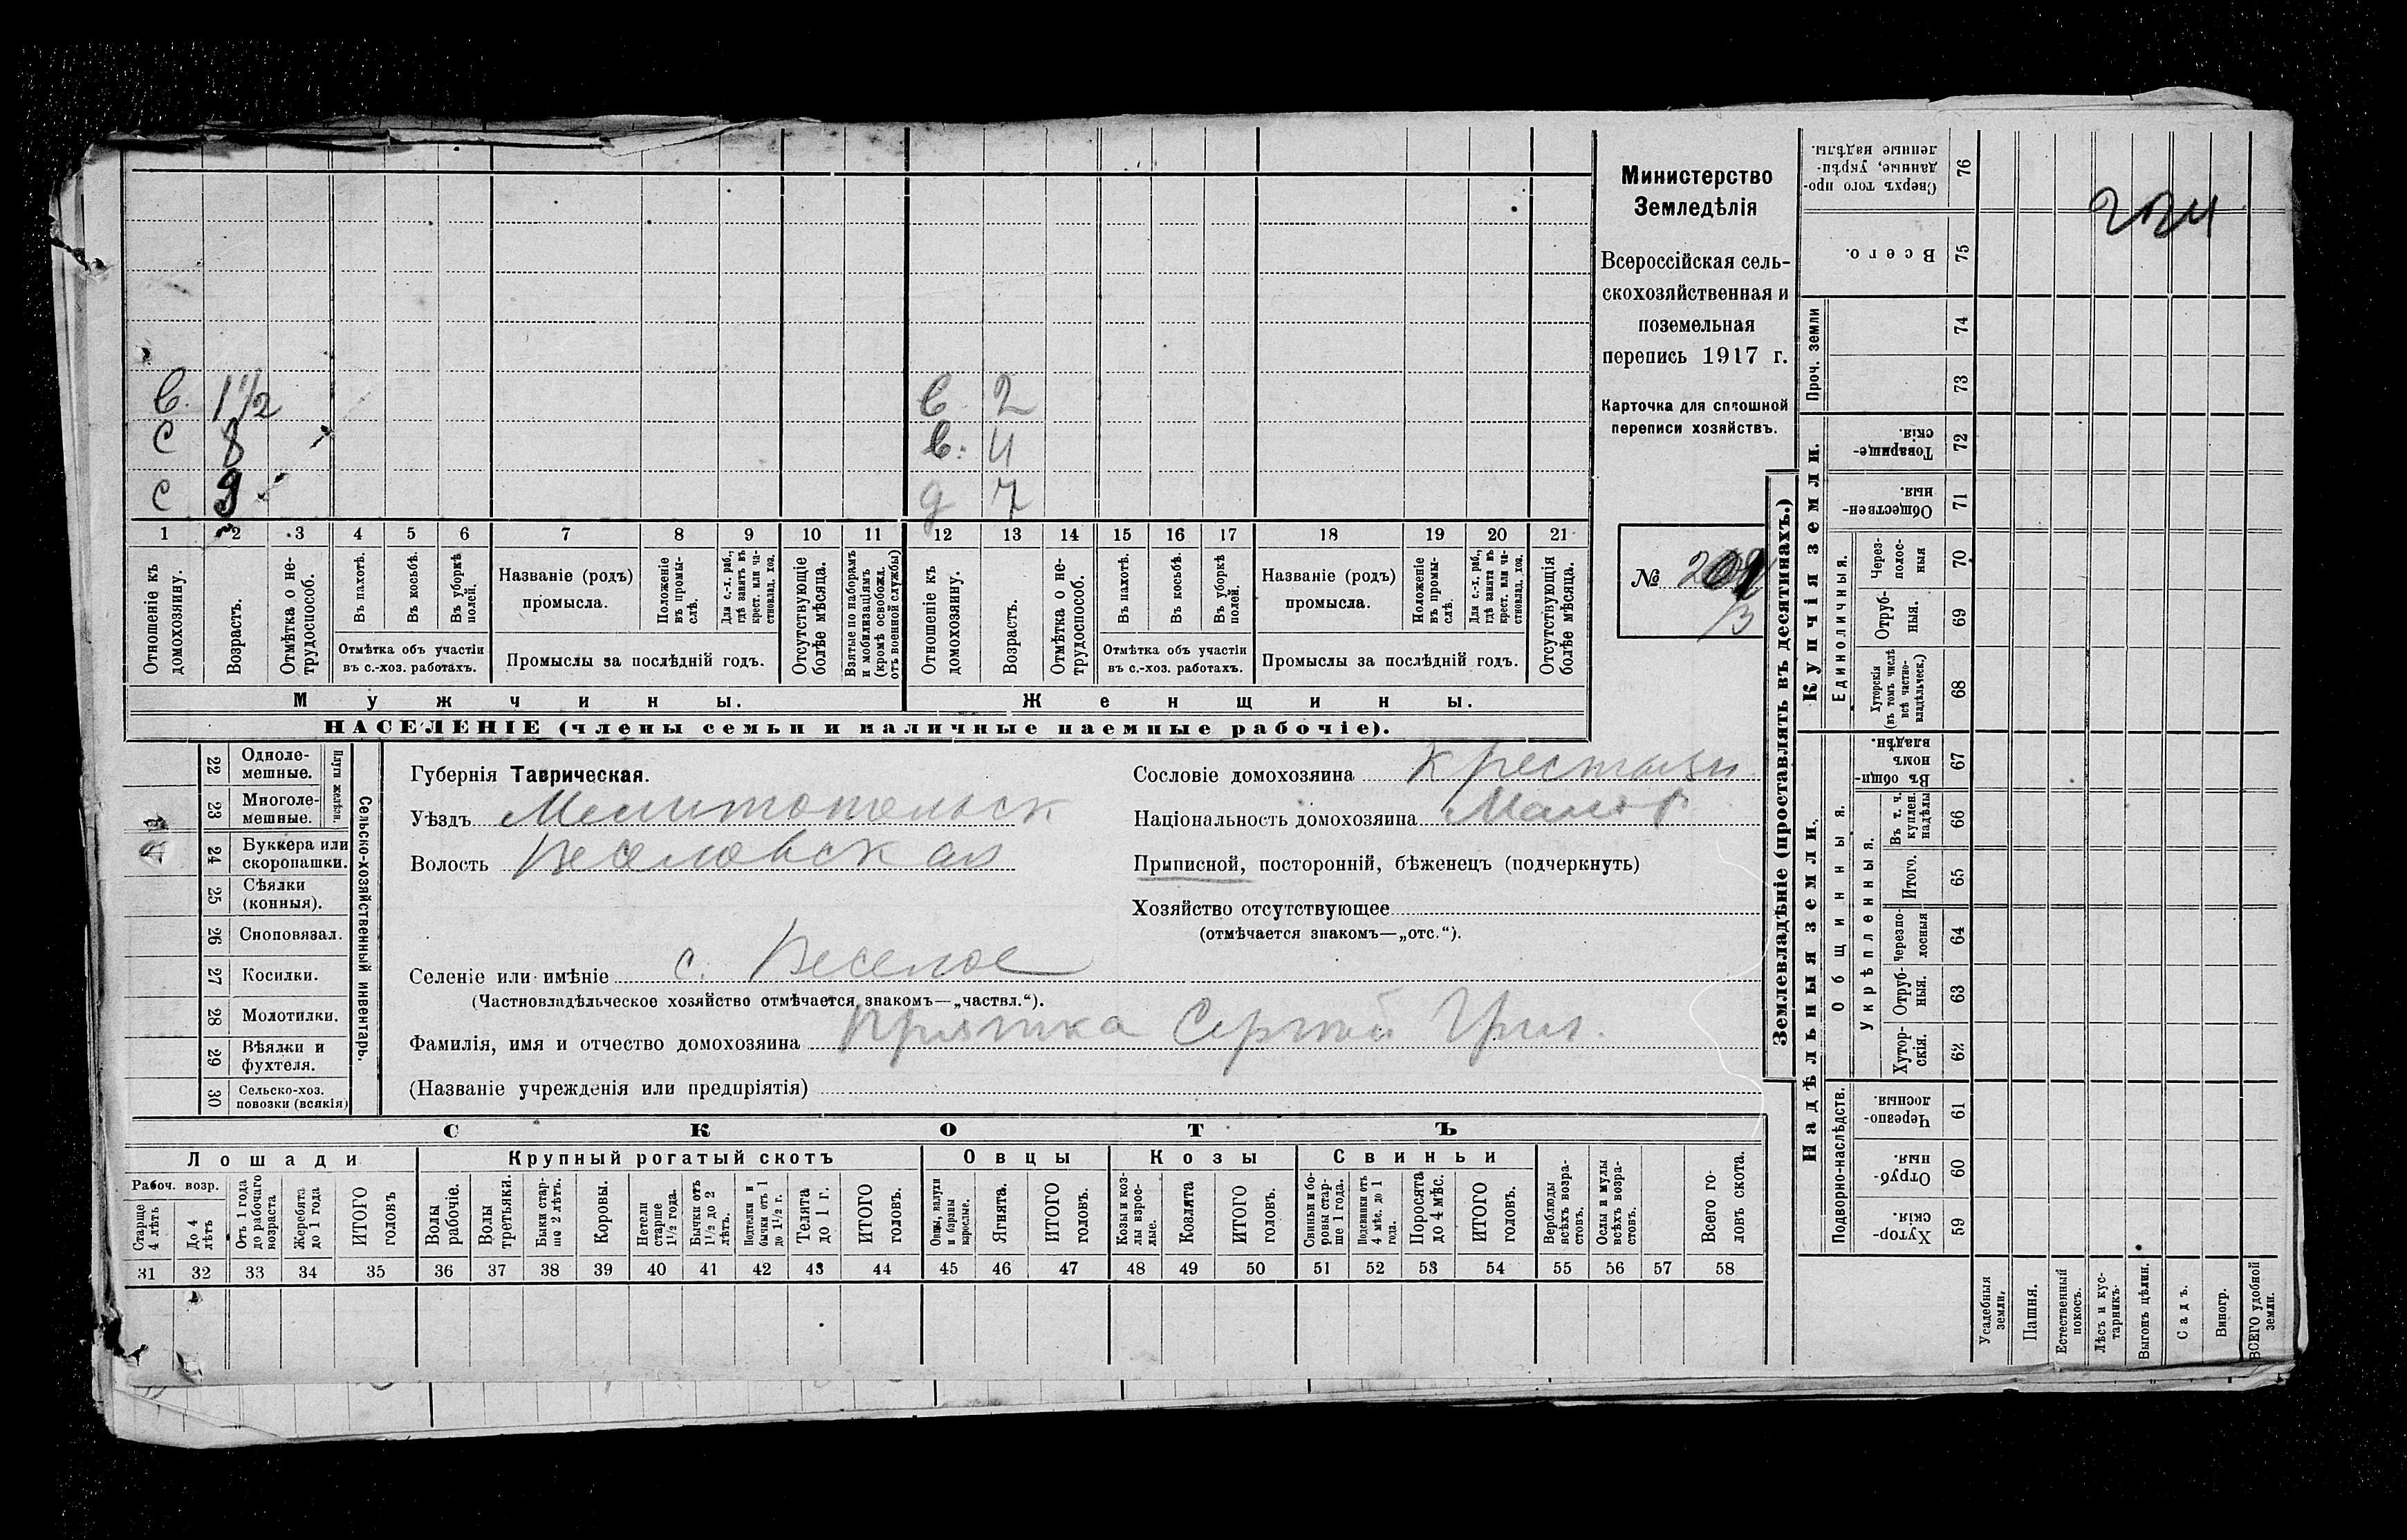 в. 1 1/2 в. 2
с 8 в. 4
с 9 д 7
1 2 3 4 5 6 7 8 9 10 11 12 13 14 15 16 17 18 19 20 21
Отношеніе къ домохозяину.
Возрастъ.
Отмѣтка о нетрудоспособ.
Въ пахотѣ.
Въ косьбѣ.
Въ уборкѣ полей.
Отмѣтка объ участіи въ с.-хоз. работахъ.
Названіе (родъ) промысла.
Положеніе въ промыслѣ.
Для с.-х. раб., гдѣ занятъ въ крест. или частновлад. хоз.
Промыслы за послѣдній годъ.
Отсутствующіе болѣе мѣсяца.
Взятые по наборамъ и мобилизаціямъ (кромѣ освобожд. отъ военной службы)
Отношеніе къ домохозяину.
Возрастъ.
Отмѣтка о нетрудоспособ.
Въ пахотѣ.
Въ косьбѣ.
Въ уборкѣ полей.
Отмѣтка объ участіи въ с.-хоз. работахъ.
Названіе (родъ) промысла.
Положеніе въ промыслѣ.
Для с.-х. раб., гдѣ занята въ крест. или частновлад. хоз.
Промыслы за послѣдній годъ.
Отсутствующія болѣе мѣсяца.
Мужчины. Женщины.
НАСЕЛЕНІЕ (члены семьи и наличные наемные рабочіе).
Министерство
Земледѣлія
Всероссійская сель-
скохозяйственная и
поземельная
перепись 1917 г.
Карточка для сплошной
переписи хозяйствъ.
№
Сельско-хозяйственный инвентарь.
Плуги желѣзн.
22 Одноле-
мешные.
23 Многоле-
мешные.
24 Буккера или
скоропашки.
25 Сѣялки
(конныя).
26 Сноповязал.
27 Косилки.
28 Молотилки.
29 Вѣялки и
фухтеля.
30 Сельско-хоз.
повозки (всякія)
Губернія Таврическая.
Уѣздъ Мелитопольск
Волость Веселовская
Сословіе домохозяина Крестьян
Національность домохозяина Малор
Приписной, посторонній, бѣженецъ (подчеркнуть)
Хозяйство отсутствующее
(отмѣчается знакомъ—„отс.“).
Селеніе или имѣніе с. Веселое
(Частновладѣльческое хозяйство отмѣчается знакомъ—„частвл.“).
Фамилія, имя и отчество домохозяина Сергѣй Григ.
(Названіе учрежденія или предпріятія)
СКОТЪ
Лошади Крупный рогатый скотъ Овцы Козы Свиньи
Рабоч. возр.
Старше 4 лѣтъ
До 4 лѣтъ
Отъ 1 года до рабочаго возраста
Жеребята до 1 года
ИТОГО головъ
Волы рабочіе.
Волы третьяки.
Быки старше 2 лѣтъ.
Коровы.
Нетели старше 1½ года.
Бычки отъ 1½ до 2 лѣтъ.
Подтелки и бычки отъ 1 до 1½ г.
Телята до 1 г.
ИТОГО головъ.
Овцы, валухи и бараны взрослые.
Ягнята.
ИТОГО головъ.
Козы и козлы взрослые.
Козлята
ИТОГО головъ.
Свиньи и боровы старше 1 года.
Подсвинки отъ 4 мѣс. до 1 года.
Поросята до 4 мѣс.
ИТОГО головъ.
Верблюды всѣхъ возрастовъ.
Ослы и мулы всѣхъ возрастовъ.
Всего головъ скота.
31 32 33 34 35 36 37 38 39 40 41 42 43 44 45 46 47 48 49 50 51 52 53 54 55 56 57 58
Землевладѣніе (проставлять въ десятинахъ.)
Купчія земли.
Проч. земли
Единоличныя.
Сверхъ того проданные, укрѣпленные надѣлы. 76
Всего. 75
74
73
Товарищескія. 72
Общественныя. 71
Черезполосныя 70
Отрубныя. 69
Хуторскія (въ томъ числѣ всѣ частновладѣльческ.) 68
Надѣльныя земли.
Общинныя.
Укрѣпленныя.
Въ общинномъ владѣн. 67
Въ т. ч. куплен. надѣлы 66
Итого. 65
Черезполосныя 64
Отрубныя. 63
Хуторскія. 62
Подворно-наслѣдств.
Черезполосныя. 61
Отрубныя. 60
Хуторскія. 59
Усадебныя земли.
Пашня.
Естественный покосъ.
Лѣсъ и кустарникъ.
Выгонъ цѣлин.
Садъ.
Виногр.
ВСЕГО удобной земли.